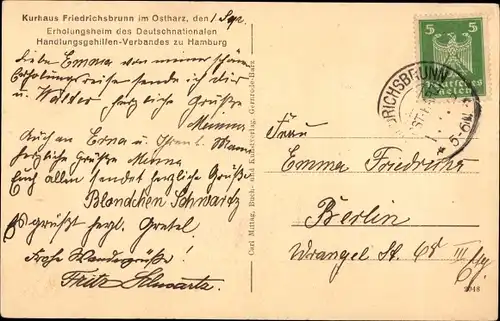 Kurhaus Friedrichsbrunn im Ostharz, den 1 Sep.
Erholungsheim des Deutschnationalen
Handlungsgehilfen-Verbandes zu Hamburg
Liebe Emma von meiner schönen
Erholungsreise sende ich dir
u Walder herzliche Grüße
Minna
Auch an Erna u Ihren Mann
herzliche Grüße Minna
Euch allen sendet herzliche Grüße
Blondchen Schwartz
Es grüßt herzl. Gretel
Frohe Wandergrüße!
Fritz Schwartz
Carl Mittag, Buch- und Kunstverlag, Gernrode-Harz
5 5
Deutsches
Reich
FRIEDRICHSBRUNN
5-6N
Frau
Emma Friedrichs
Berlin
Wrangel St. 68 III
2046